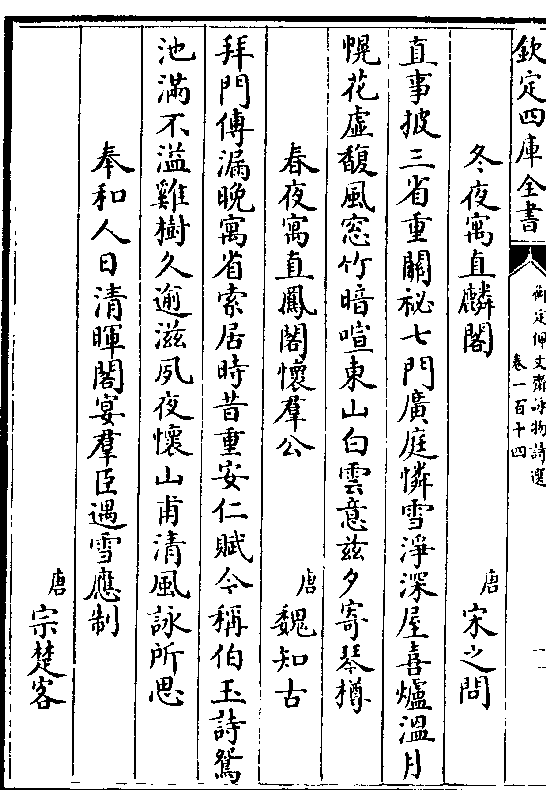 欽定四庫全書
御定佩文齋詠物詩選
卷一百十四
冬夜寓直麟閣
唐 宋之問
直事披三省重關祕七門廣庭憐雪淨深屋喜爐溫月
幌花虛馥風窓竹暗喧東山白雲意兹夕寄琴樽
春夜寓直鳳閣懷羣公
唐 魏知古
拜門傳漏晚寓省索居時昔重安仁賦今稱伯玉詩鴛
池滿不溢雞樹久逾滋夙夜懷山甫清風詠所思
奉和人日清暉閣宴羣臣遇雪應制
唐 宗楚客